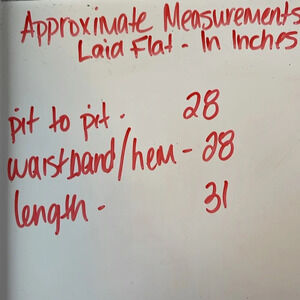 Approximate Measurements
Laid Flat - In Inches
pit to pit - 28
waistband/hem - 28
length - 31